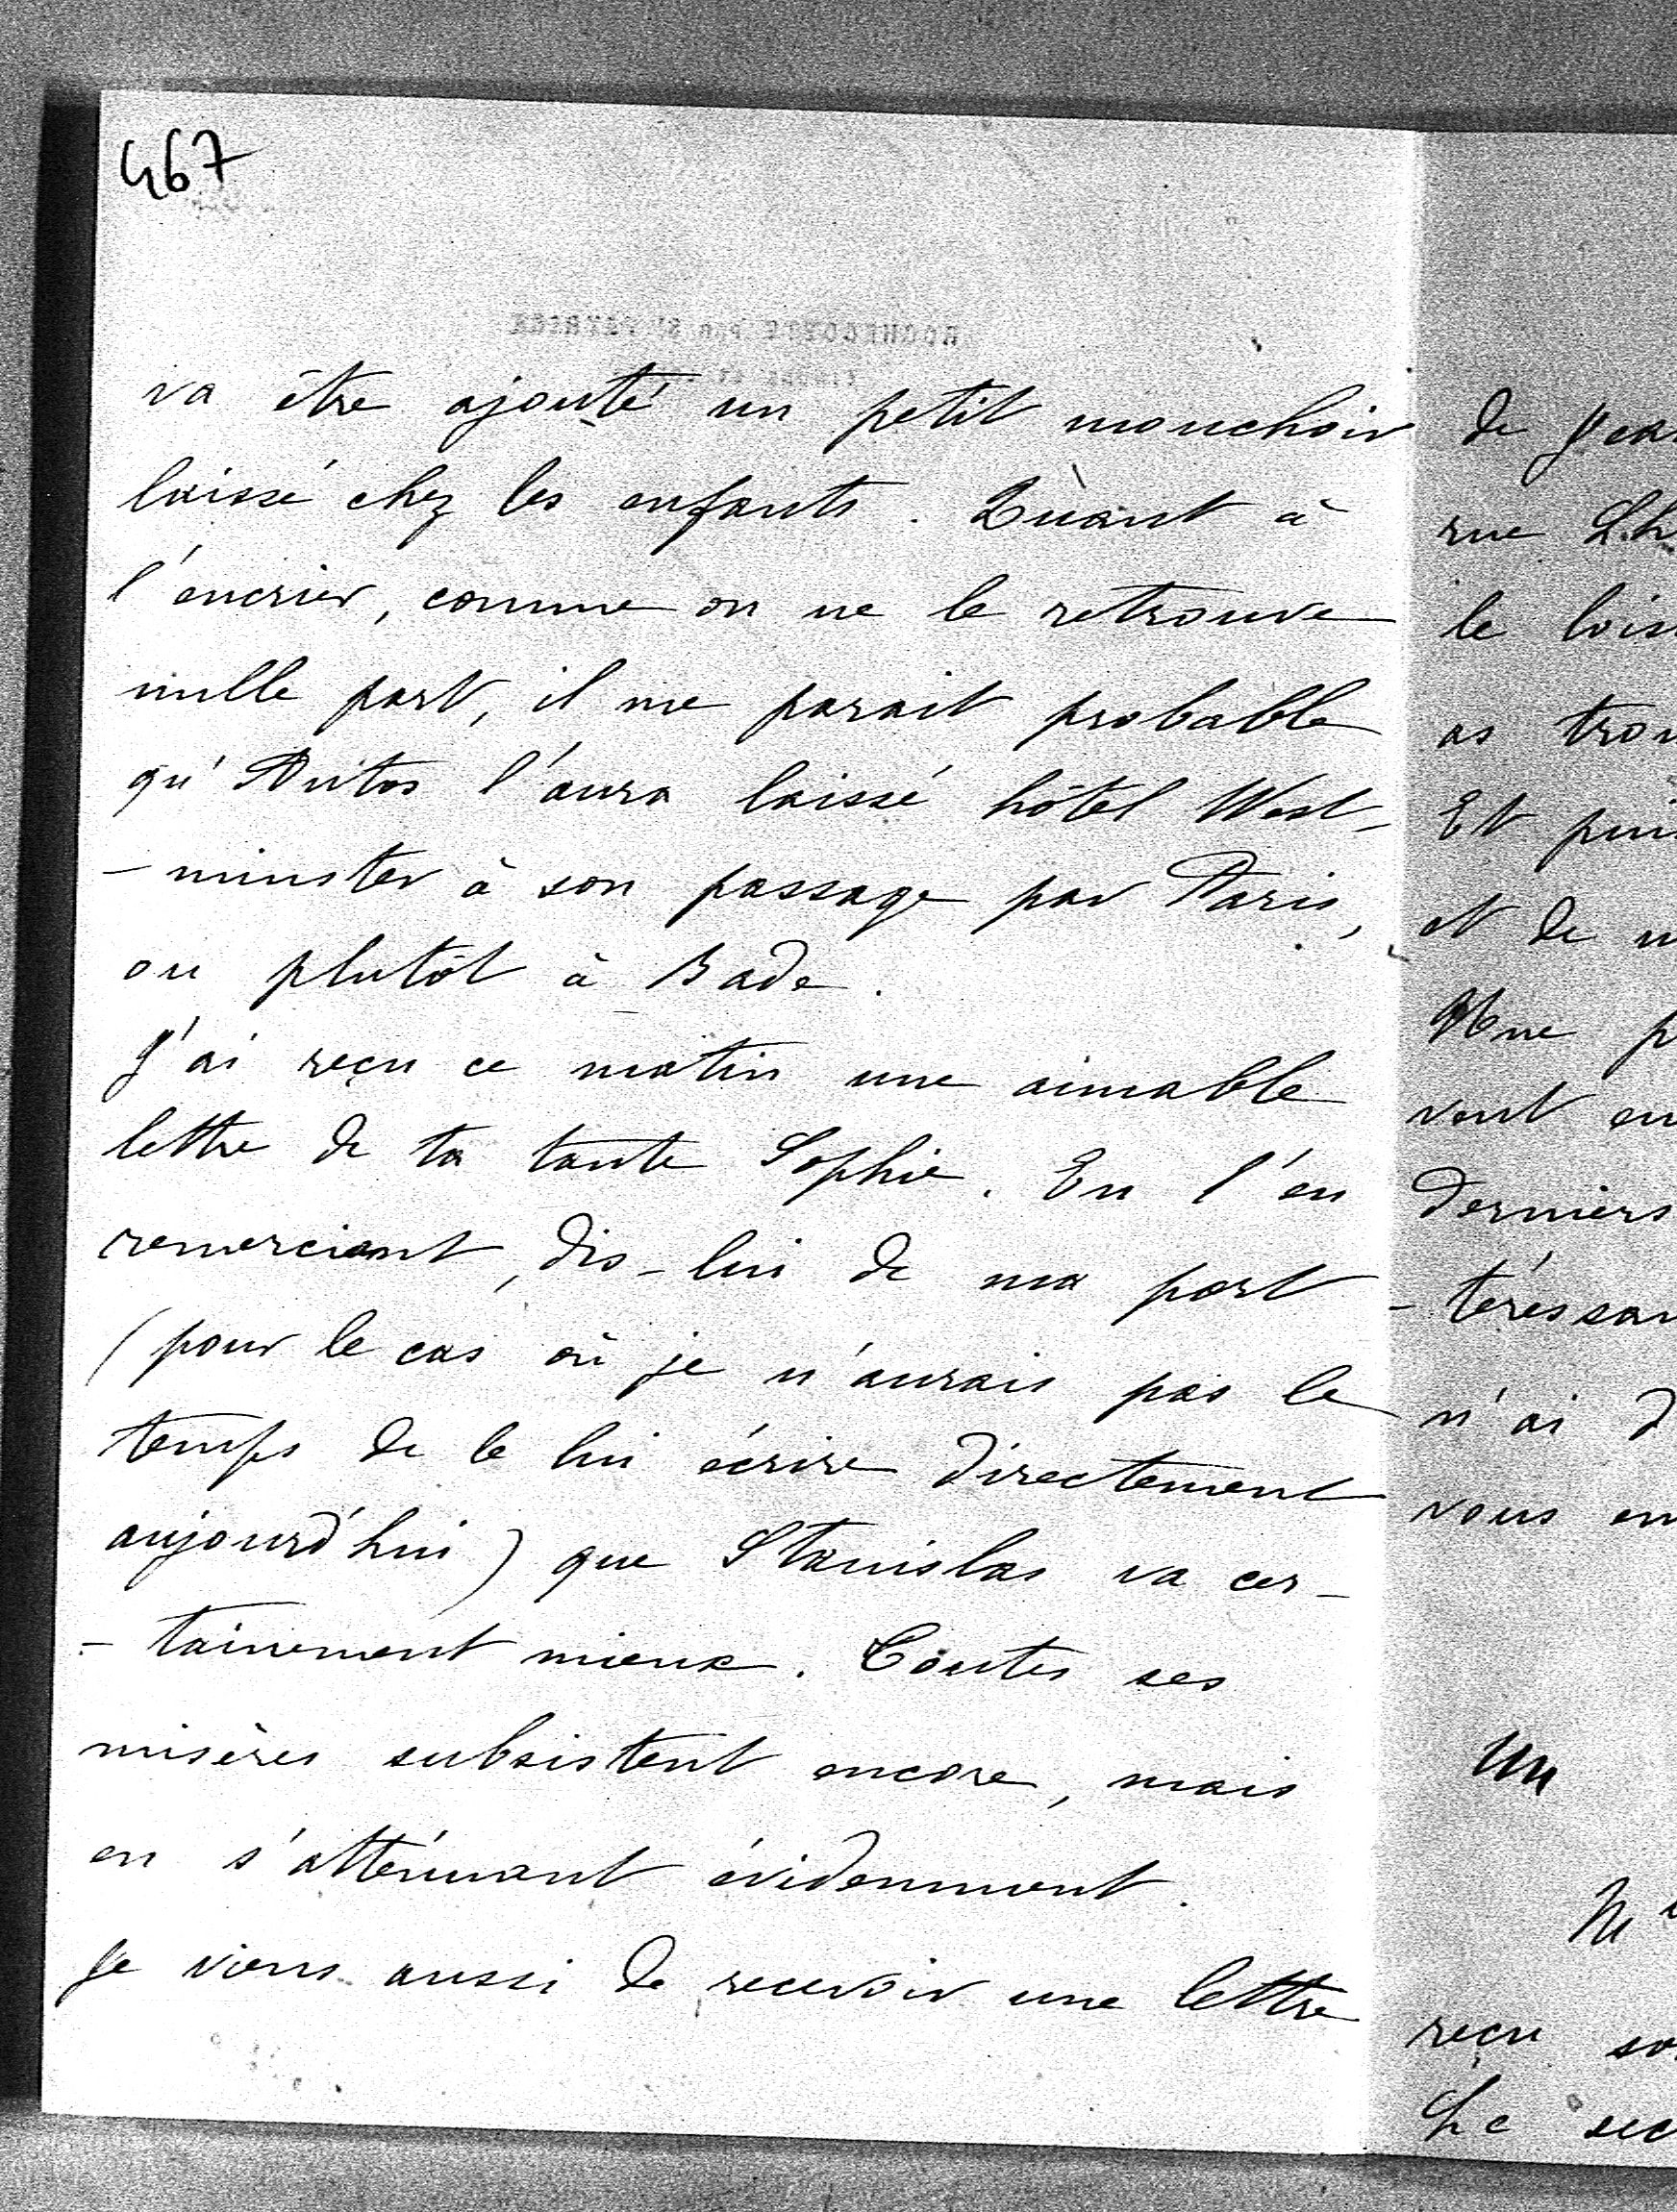 467
va être ajouté un petit mouchoir
laissé chez les enfants. Quant à
l'encrier, comme on ne le retrouve
nulle part, il me parait probable
qu' l'aura laissé hôtel West-
-minster à son passage par Paris,
ou plutôt à Bade.
J'ai reçu ce matin une aimable
lettre de ta tante Sophie. En l'en
remerciant, dis-lui de ma part
(pour le cas où je n'aurais pas le
temps de le lui écrire directement
aujourd'hui) que Stanislas va cer-
-tainement mieux. Toutes ses
misères subsistent encore, mais
en s'atténuant évidemment.
Je viens aussi de recevoir une lettre
de
rue
le
as
Et
et de
Une
vont
derniers
n'ai
vous
un
reçu